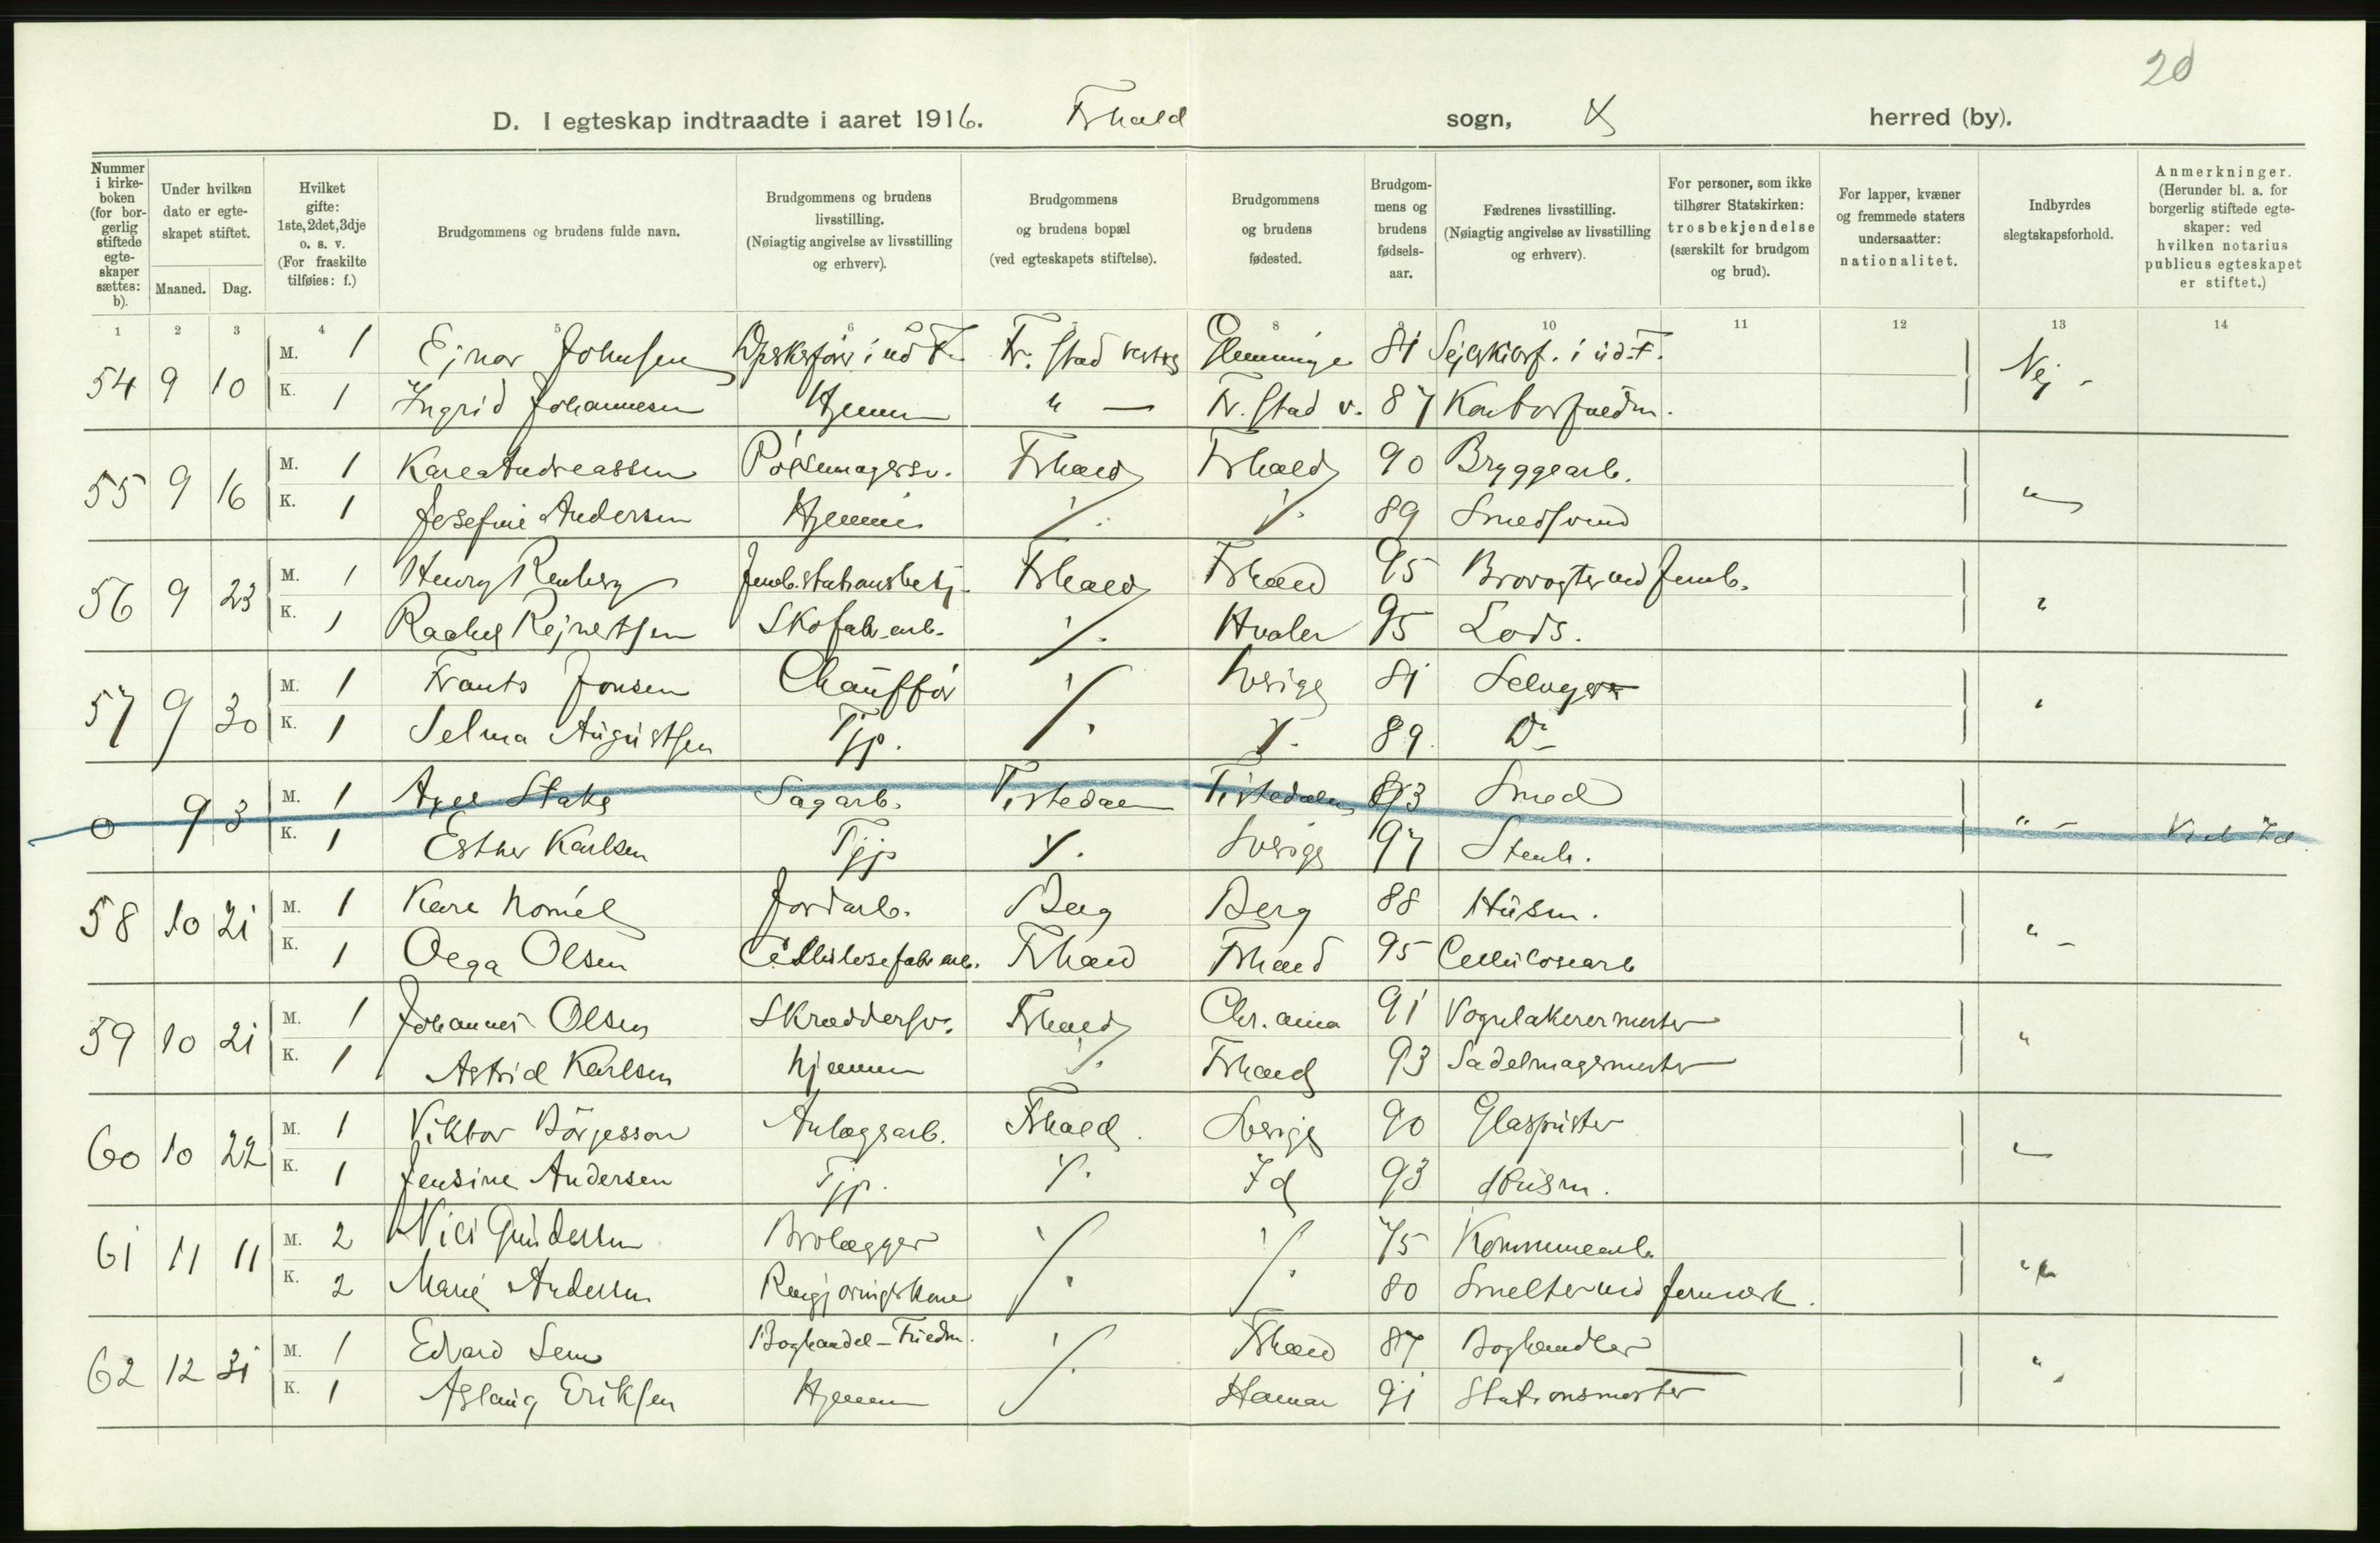 20
D. I egteskap indtraadte i aaret 1916. Frhald sogn, herred (by).
Nummer i kirkeboken (for borgerlig stiftede egteskaper sættes: b).
Under hvilken dato er egteskapet stiftet.
Maaned. Dag.
Hvilket gifte: 1ste, 2det, 3dje o. s. v. (For fraskilte tilføies: f.)
Brudgommens og brudens fulde navn.
Brudgommens og brudens livsstilling. (Nøiagtig angivelse av livsstilling og erhverv).
Brudgommens og brudens bopæl (ved egteskapets stiftelse).
Brudgommens og brudens fødested.
Brudgommens og brudens fødselsaar.
Fædrenes livsstilling. (Nøiagtig angivelse av livsstilling og erhverv).
For personer, som ikke tilhører Statskirken: trosbekjendelse (særskilt for brudgom og brud).
For lapper, kvæner og fremmede staters undersaatter: nationalitet.
Indbyrdes slegtskapsforhold.
Anmerkninger. (Herunder bl. a. for borgerlig stiftede egteskaper: ved hvilken notarius publicus egteskapet er stiftet.)
1 2 3 4 5 6 8 9 10 11 12 13 14
54 9 10 M. 1 Ejnar Johnsen Fr. stad Glemminge 81 Nej
K. 1 Ingrid Johannesen Hjemme " — Fr. stad v. 87 Kontorfuldm.
55 9 16 M. 1 Karl Andreassen Pølsemagersv. Frhald Frhald 90 Bryggearb. "
K. 1 Josefine Andersen Hjemme ./. ./. 89 Smedsvend
56 9 23 M. 1 Henry Renberg Jernb.stationsbetj. Frhald Frhald 95 Brovogter ved Jernb. "
K. 1 Rachel Rejnertsen Skofabr.arb. ./. Hvaler 95 Lods.
57 9 30 M. 1 Frants Jonsen Chauffør ./. Sverige 81 Selveger "
K. 1 Selma Augustsen Tjp. ./. 89. Do
0 9 3 M. 1 Axel Stake Sagarb. Tistedalen Tistedalen 93 Smed " Id
K. 1 Esther Karlsen Tjp ./. Sverige 97 Stenh.
58 10 21 M. 1 Karl Jordarb. Berg Berg 88 Husm. "
K. 1 Olga Olsen Cellulosefabr.arb. Frhald Frhald 95 Cellulosearb
59 10 21 M. 1 Johannes Olsen Skræddersv. Frhald Chr.ania 91 Vognlakerermester "
K. 1 Astrid Karlsen hjemme ./. Frhald 93 Sadelmagermester
60 10 22 M. 1 Viktor Börjesson Anlægsarb. Frhald. Sverige 90 Glaspuster "
K. 1 Jensine Andersen Tjp. ./. Id 93 Husm.
61 11 11 M. 2 Nils Gundersen Brolægger ./. ./. 75 Kommunearb. "
K. 2 Marie Andersen Rengjøringskone 80 Smelter ved Jernverk.
62 12 31 M. 1 Edvard Lem Boghandel-Fuldm. ./. Frhald 87 Boghandler "
K. 1 Aslaug Eriksen Hjemme Hamar 91 Stationsmester